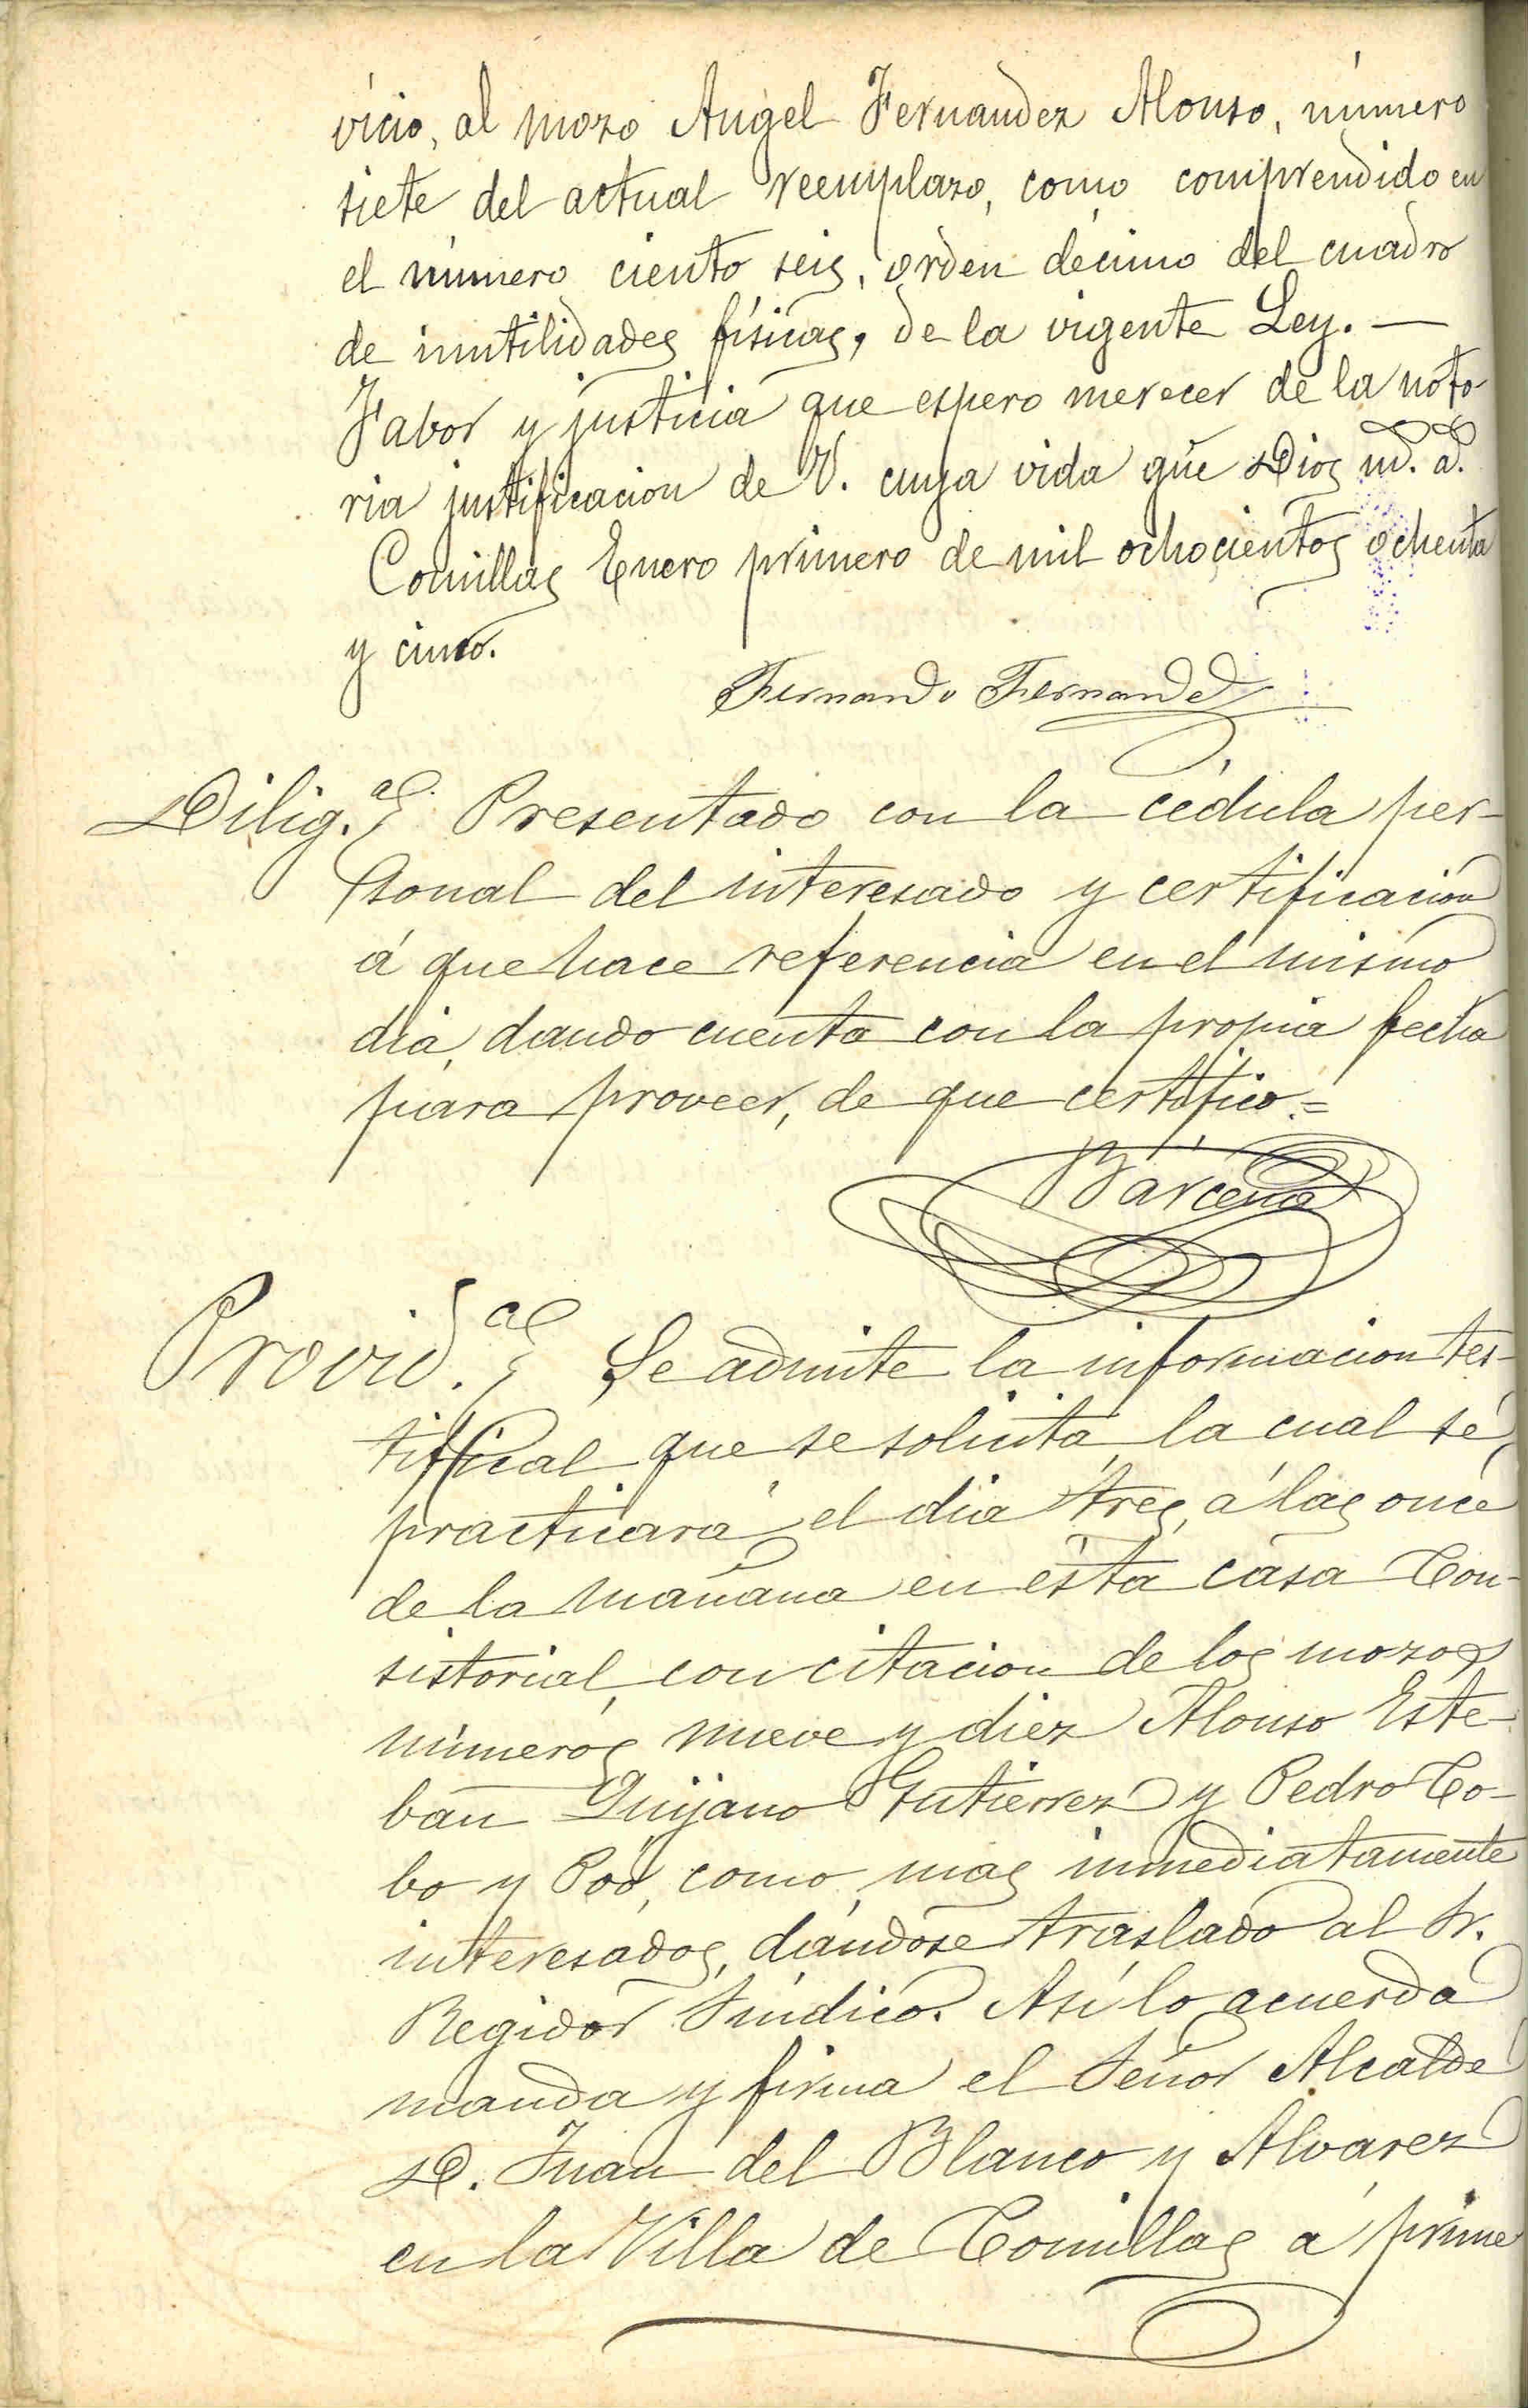 vicio, al mozo Angel Fernandez Alonso, número
siete del actual reemplazo, como comprendido en
el número ciento seis, orden décimo del cuadro
de inutilidades físicas, de la vigente Ley. —
Fabor y justicia que espero merecer de la noto-
ria justificacion de V. cuya vida gue Dios m.s a.s
Comillas Enero primero de mil ochocientos ochenta
y cinco.
Fernando Fernandez
Dilig.a Presentado con la cédula per-
sonal del interesado y certificación
á que hace referencia en el mismo
dia, dando cuenta con la propia fecha
para proveer, de que certifico.=
Bárcena
Provid.a Se admite la informacion tes-
tifical que se solicita, la cual se
practicará el dia tres, á las once
de la mañana en esta casa Con-
sistorial, con citacion de los mozos
números nueve y diez Alonso Este-
ban Quijano Gutierrez y Pedro Co-
bo y Póo, como mas inmediatamente
interesados, dándose traslado al Sr.
Regidor Síndico. Así lo acuerda
manda y firma el Señor Alcalde
D. Juan del Blanco y Alvarez
en la Villa de Comillas á prime